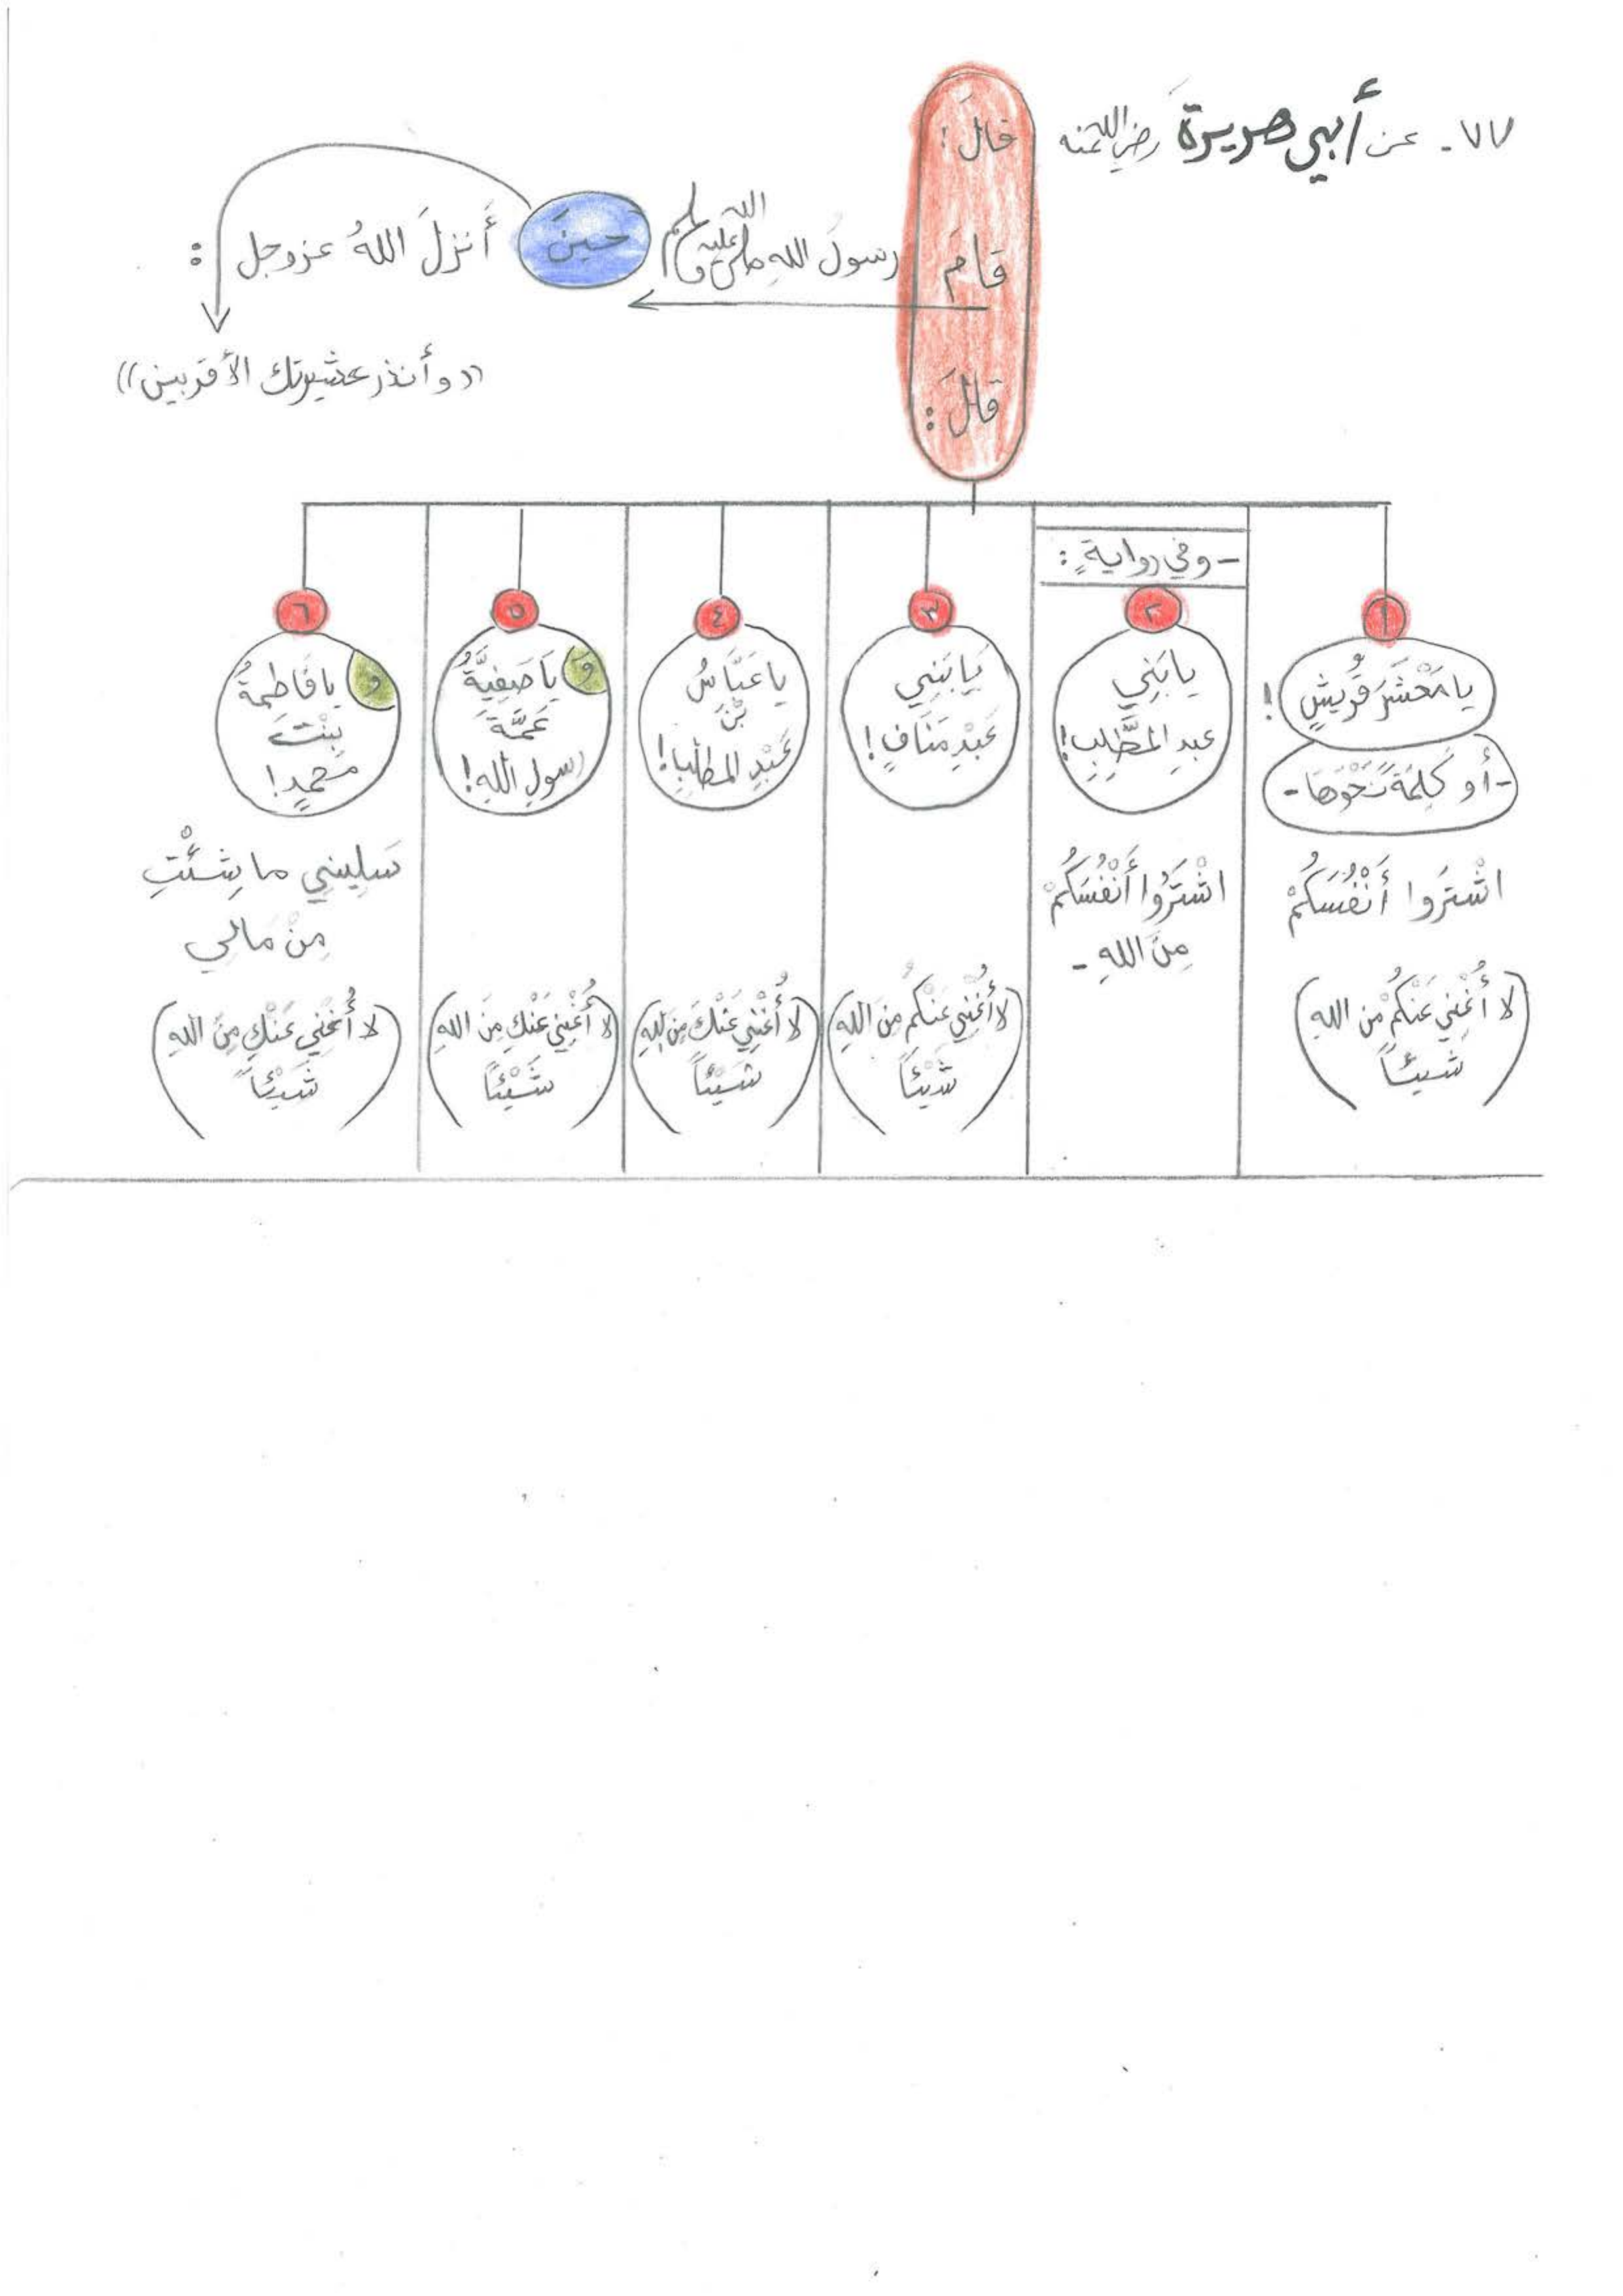 ٧٧ - عن أبي هريرةَ رضي الله عنه
قالَ:
قامَ رسولُ اللهِ صلى الله عليه وسلم حينَ أَنزلَ اللهُ عزوجل:
((وأنذر عشيرتك الأقربين))
قالَ:
١
يا مَعْشَرَ قُرَيشٍ!
- أو كَلِمَةً نَحْوَهَا -
اشْتَرُوا أَنْفُسَكُمْ
(لا أُغْنِي عَنْكُمْ مِن اللهِ
شيئاً)
- وفي روايةٍ:
٢
يا بَنِي
عبدِ المُطَّلِبِ!
اشْتَرُوا أَنْفُسَكُمْ
مِنَ اللهِ -
٣
يَا بَنِي
عَبْدِ مَنَافٍ!
(لا أُغْنِي عَنْكُمْ مِنَ اللهِ
شَيْئاً)
٤
يا عَبَّاسُ
بْنَ
عَبْدِ المطلبِ!
(لا أُغْنِي عَنْكَ مِنَ اللهِ
شَيْئاً)
٥
وَ يَا صَفِيَّةُ
عَمَّةَ
رسولِ اللهِ!
(لا أُغْنِي عَنْكِ مِنَ اللهِ
شَيْئاً)
٦
و يا فَاطمةُ
بِنْتَ
مُحمدٍ!
سَلِيني ما شِئْتِ
مِنْ مَالي
(لا أُغْنِي عَنْكِ مِنَ اللهِ
شَيْئاً)